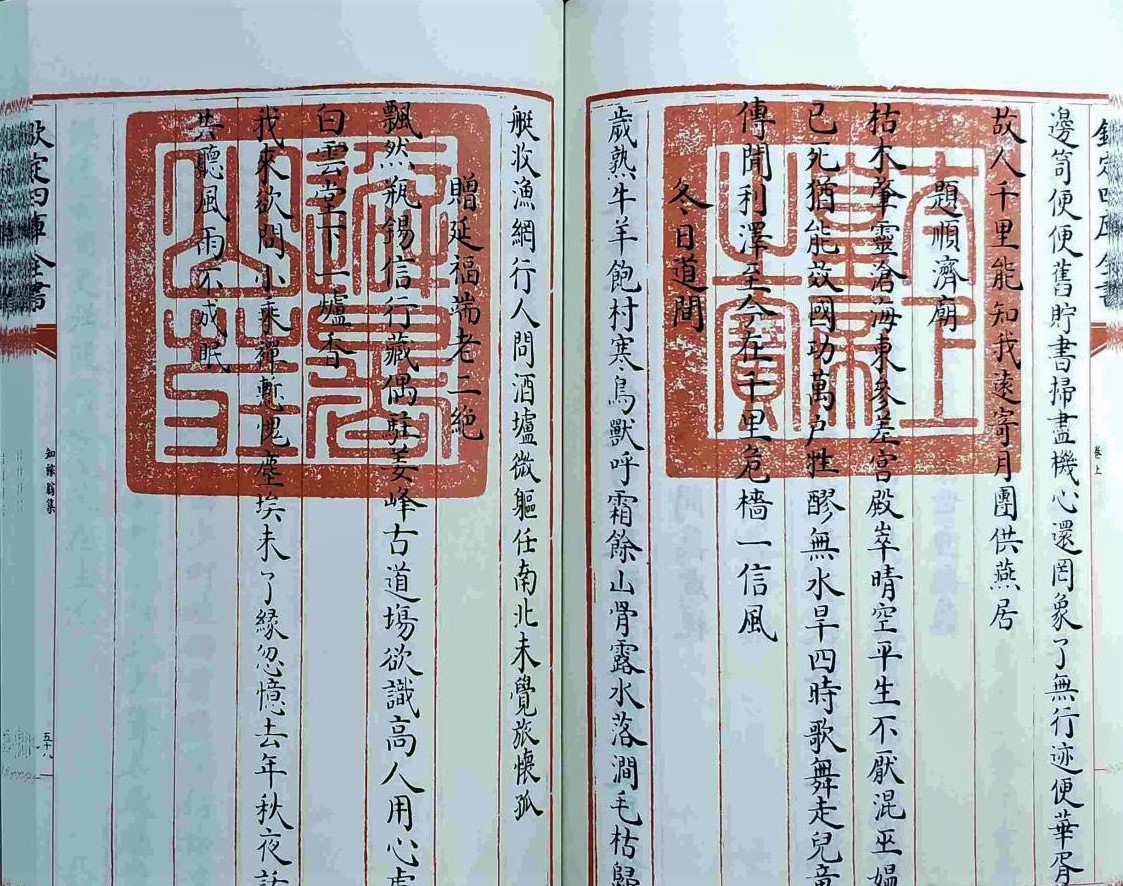 欽定四庫全書
卷上
邊笥便便舊貯書掃盡機心還罔象了無行迹便華胥
故人千里能知我遠寄月團供燕居
題順濟廟
枯木肇靈滄海東參差宮殿崒晴空平生不厭混巫媼
已死猶能效國功萬戶牲醪無水旱四時歌舞走兒童
傳聞利澤至今在千里危檣一信風
冬日道間
歲熟牛羊飽村寒鳥獸呼霜餘山骨露水落澗毛枯歸
太上皇帝之寶
艇收漁網行人問酒壚微軀任南北未覺旅懷孤
贈延福端老二絶
飄然瓶錫信行藏偶駐姜峰古道塲欲識高人用心處
白雲堂下一爐香
我來欲問小乘禪慙愧塵埃未了緣忽憶去年秋夜話
共聽風雨不成眠
避暑山莊
欽定四庫全書
知稼翁集
五十八